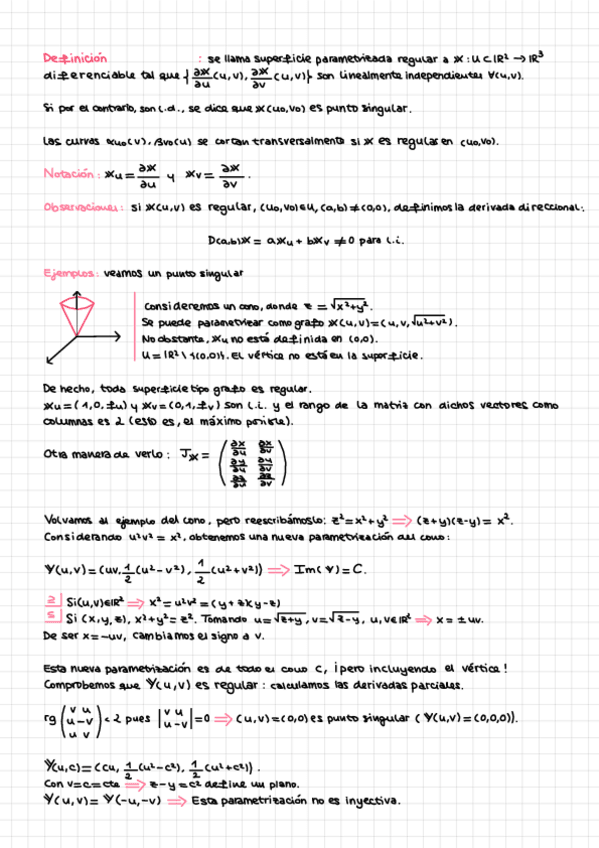 Definición : se llama superficie parametrizada regular a 𝕏 : U ⊂ ℝ² → ℝ³
diferenciable tal que {∂𝕏/∂u (u,v), ∂𝕏/∂v (u,v)} son linealmente independientes ∀(u,v).
Si por el contrario, son l.d., se dice que 𝕏(u₀,v₀) es punto singular.
Las curvas αu₀(v), βv₀(u) se cortan transversalmente si 𝕏 es regular en (u₀,v₀).
Notación: 𝕏u = ∂𝕏/∂u y 𝕏v = ∂𝕏/∂v .
Observaciones: si 𝕏(u,v) es regular, (u₀,v₀)∈U, (a,b)≠(0,0), definimos la derivada direccional:
D(a,b)𝕏 = a𝕏u + b𝕏v ≠ 0 para l.i.
Ejemplos: veamos un punto singular
Consideremos un cono, donde z = √x²+y².
Se puede parametrizar como grafo 𝕏(u,v)=(u,v,√u²+v²).
No obstante, 𝕏u no está definida en (0,0).
U = ℝ² \ {(0,0)}. El vértice no está en la superficie.
De hecho, toda superficie tipo grafo es regular.
𝕏u = (1,0,fu) y 𝕏v = (0,1,fv) son l.i. y el rango de la matriz con dichos vectores como
columnas es 2 (esto es, el máximo posible).
Otra manera de verlo : J𝕏 = (∂x/∂u ∂x/∂v ∂y/∂u ∂y/∂v ∂z/∂u ∂z/∂v)
Volvamos al ejemplo del cono, pero reescribámoslo: z²=x²+y² ⟹ (z+y)(z-y) = x².
Considerando u²v² = x², obtenemos una nueva parametrización del cono:
Y(u,v)=(uv, 1/2 (u²-v²), 1/2 (u²+v²)) ⟹ Im(Y) = C.
⊇ Si (u,v)∈ℝ² ⟹ x² = u²v² = (y+z)(y-z)
⊆ Si (x,y,z), x²+y² = z². Tomando u=√z+y, v=√z-y, u,v∈ℝ² ⟹ x = ± uv.
De ser x = -uv, cambiamos el signo a v.
Esta nueva parametrización es de todo el cono C, ¡pero incluyendo el vértice!
Comprobemos que Y(u,v) es regular : calculamos las derivadas parciales.
rg (v u u -v u v) < 2 pues |v u u -v| = 0 ⟹ (u,v)=(0,0) es punto singular ( Y(u,v)=(0,0,0)).
Y(u,c)=(cu, 1/2 (u²-c²), 1/2 (u²+c²)) .
Con v=c=cte ⟹ z-y=c² define un plano.
Y(u,v) = Y(-u,-v) ⟹ Esta parametrización no es inyectiva.